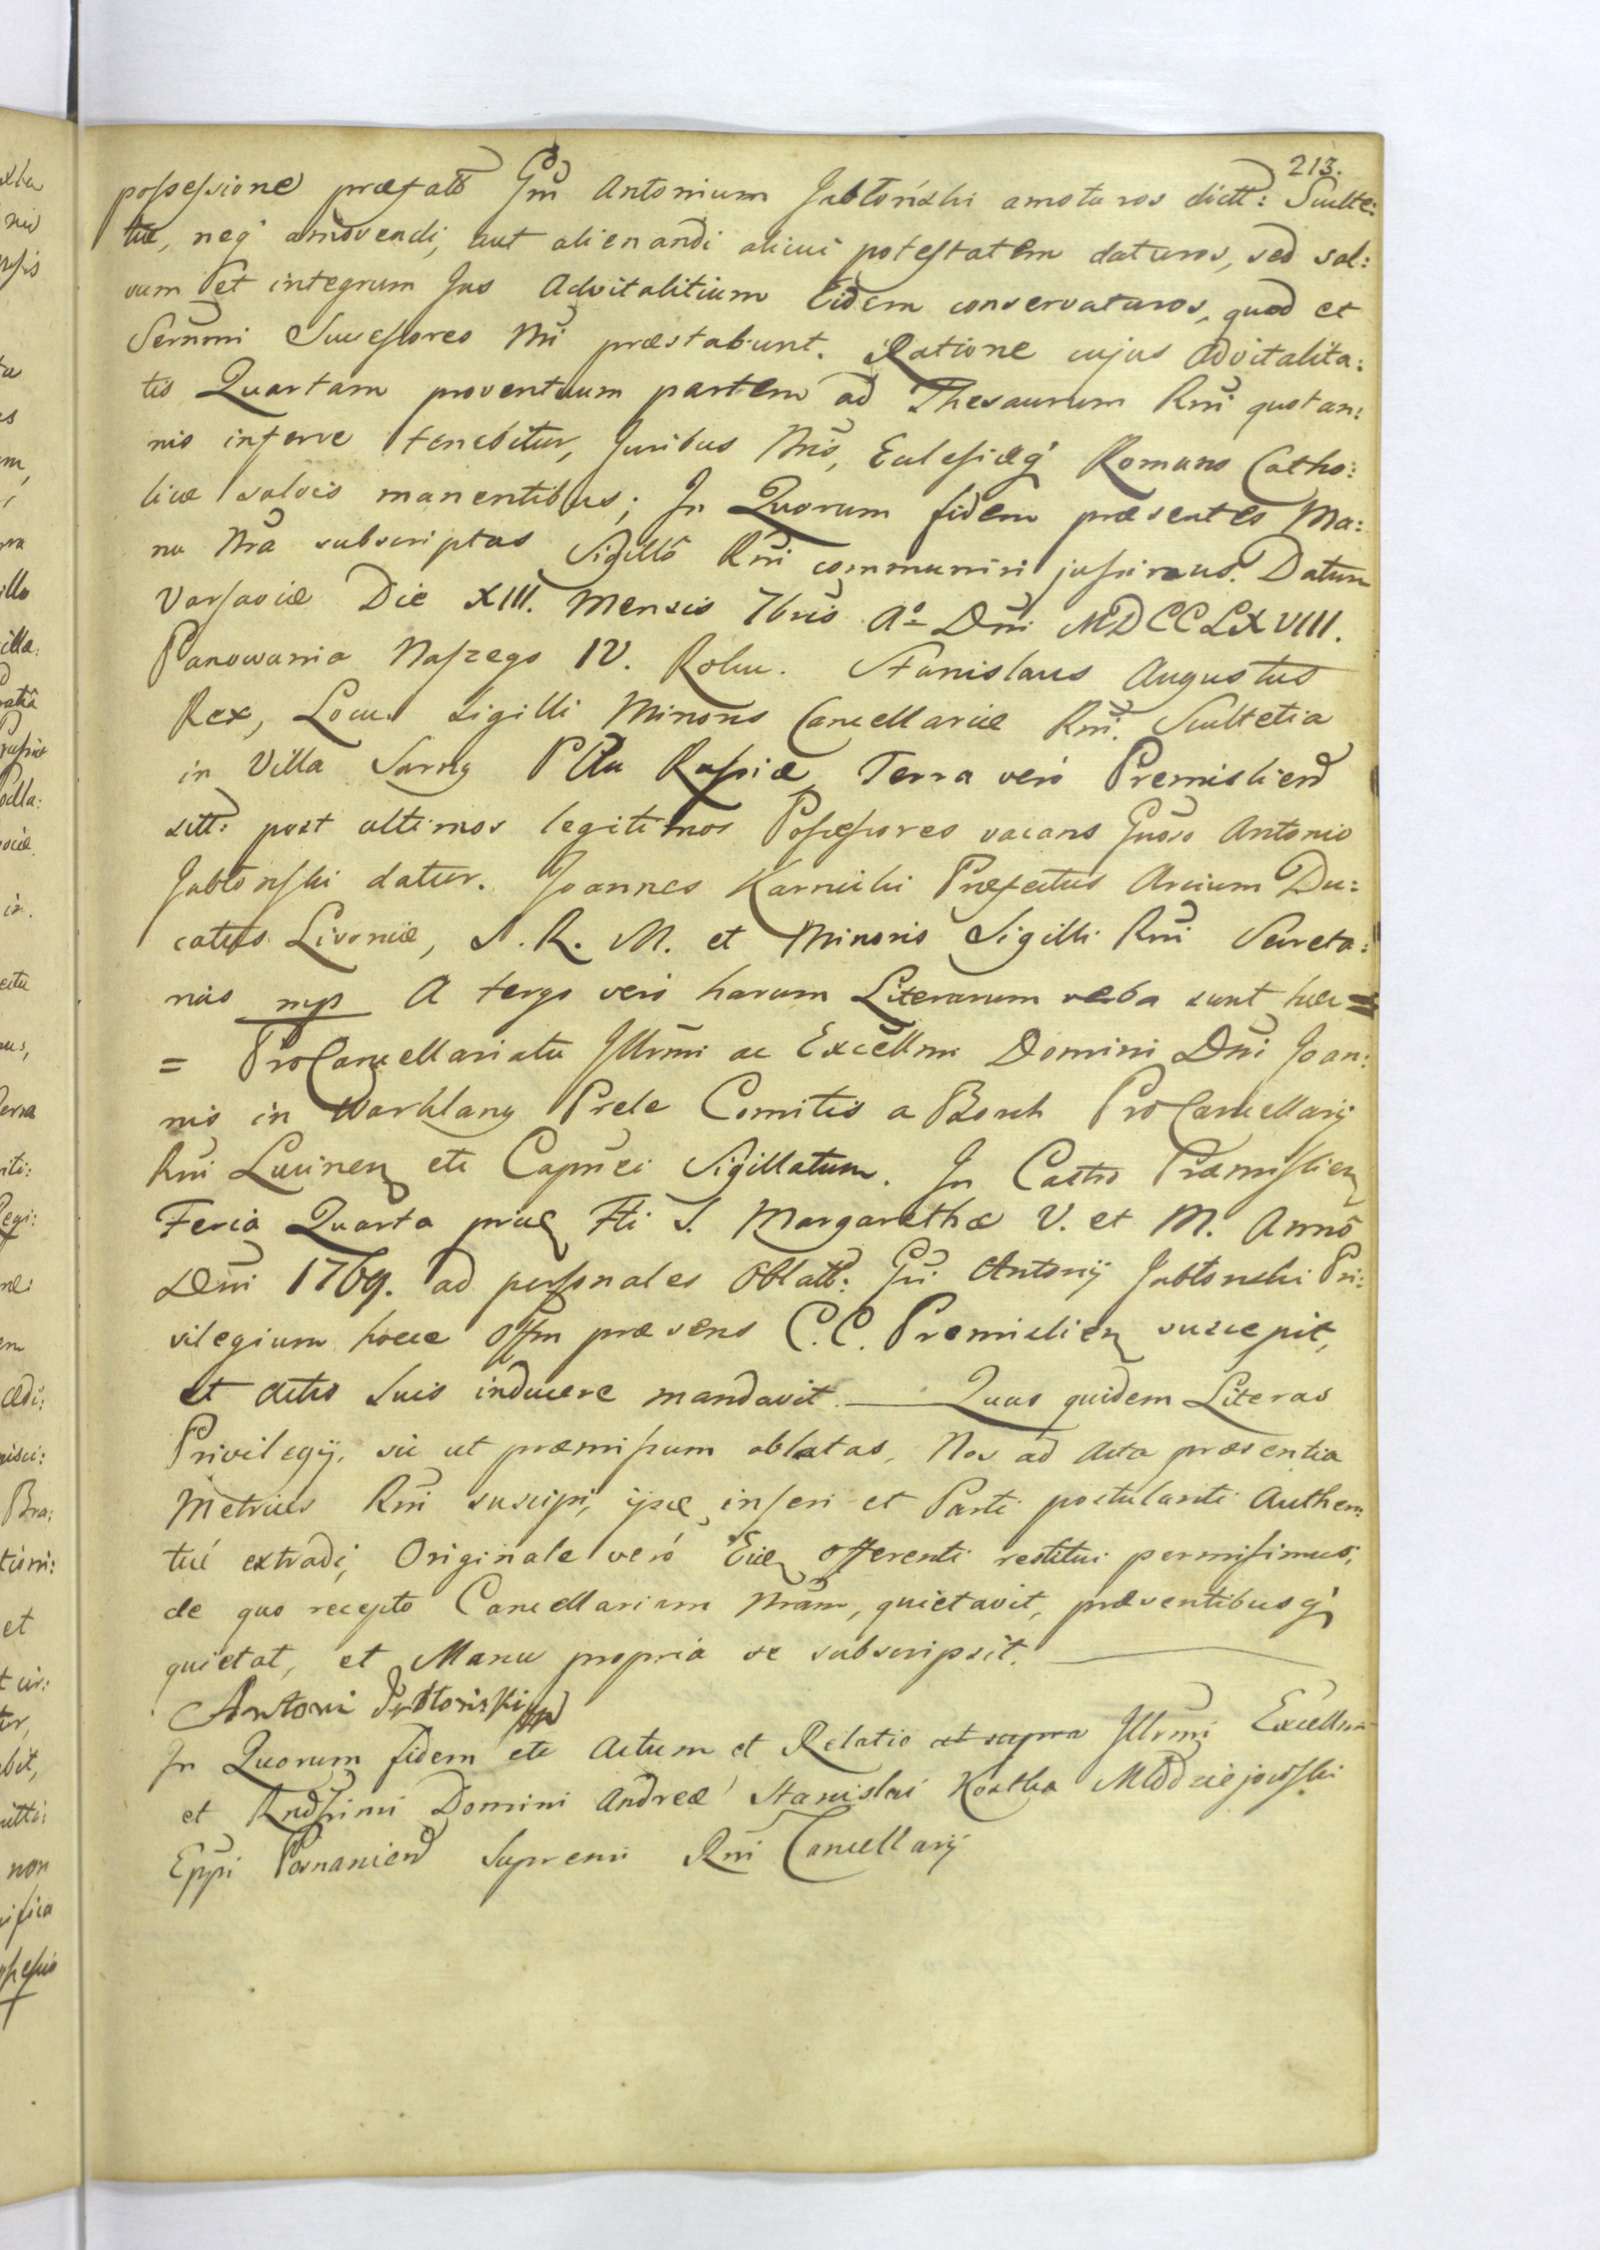 213.
possessione præfatô Gñi Antonium Jabłoński amoturos dictt: Sculte:
tiæ, neq́ amovendi, aut alienandi alicui potestatem daturos, sed sal:
vum et integrum Jus Advitalitium Eidem conservaturos, quod et
Serñmi Successores Ñri præstabunt. Ratione cujus Advitalita:
tis Quartam proventuum partem ad Thesaurum Rñi quotan:
nis inferre tenebitur, Juribus Ñris, Eclesiæq́ Romano Catho:
licæ salvis manentibus; In Quorum fidem præsentes Ma:
nu Ñra subscriptas Sigillô Rñi communiri jussimus. Datum
Varsaviæ Die XIII. Mensis 7bris A° Dñi MDCCLXVIII.
Panowania Naszego IV. Roku. Stanislaus Augustus
Rex, Locus Sigilli Minoris Cancellariæ Rñi. Scultetia
in Villa Sarny Pltu Russiæ Terra veró Premislien
sitt: post ultimos legitimos Possessores vacans Gñoso Antonio
Jabłonski datur. Joannes Karnicki Præfectus Arcium Du:
catus Livoniæ, S. R. M. et Minoris Sigilli Rñi Secreta:
rius mp A tergo veró harum Literarum verba sunt hæc =
= ProCancellariatu Jllrm̃i ac Excellm̃i Domini Dñi Joan:
nis in Warklany Prele Comitis a Borch ProCancellarij
Rñi Lucinen etc Capñei Sigillatum. In Castro Præmislien
Feria Quarta prid Fti S. Margarethæ V. et M. Annô
Dñi 1769. ad personales Oblatt: Gñi Antonij Jabłonski Pri:
vilegium hocce Offm præsens C. C. Premislien suscepit,
et Actis Suis inducere mandavit. Quas quidem Literas
Privilegij, sic ut præmissum oblatas, Nos ad Acta præsentia
Metrices Rñi suscipi, ijsq inseri et Parti postulanti Authen:
ticé extradi, Originale veró Eid offerenti restitui permisimus;
de quo recepto Cancellariam Ñram, quietavit, præsentibusq́
quietat, et Manu propria se subscripsit.
Antoni Jabłoński mp
In Quorum fidem etc Actum et Relatio ut supra Jllrm̃i Excellm̃
et Rndssimi Domini Andreæ Stanislai Kostka Młodziejowski
Eppi Posnanien Supremi Rñi Cancellarij